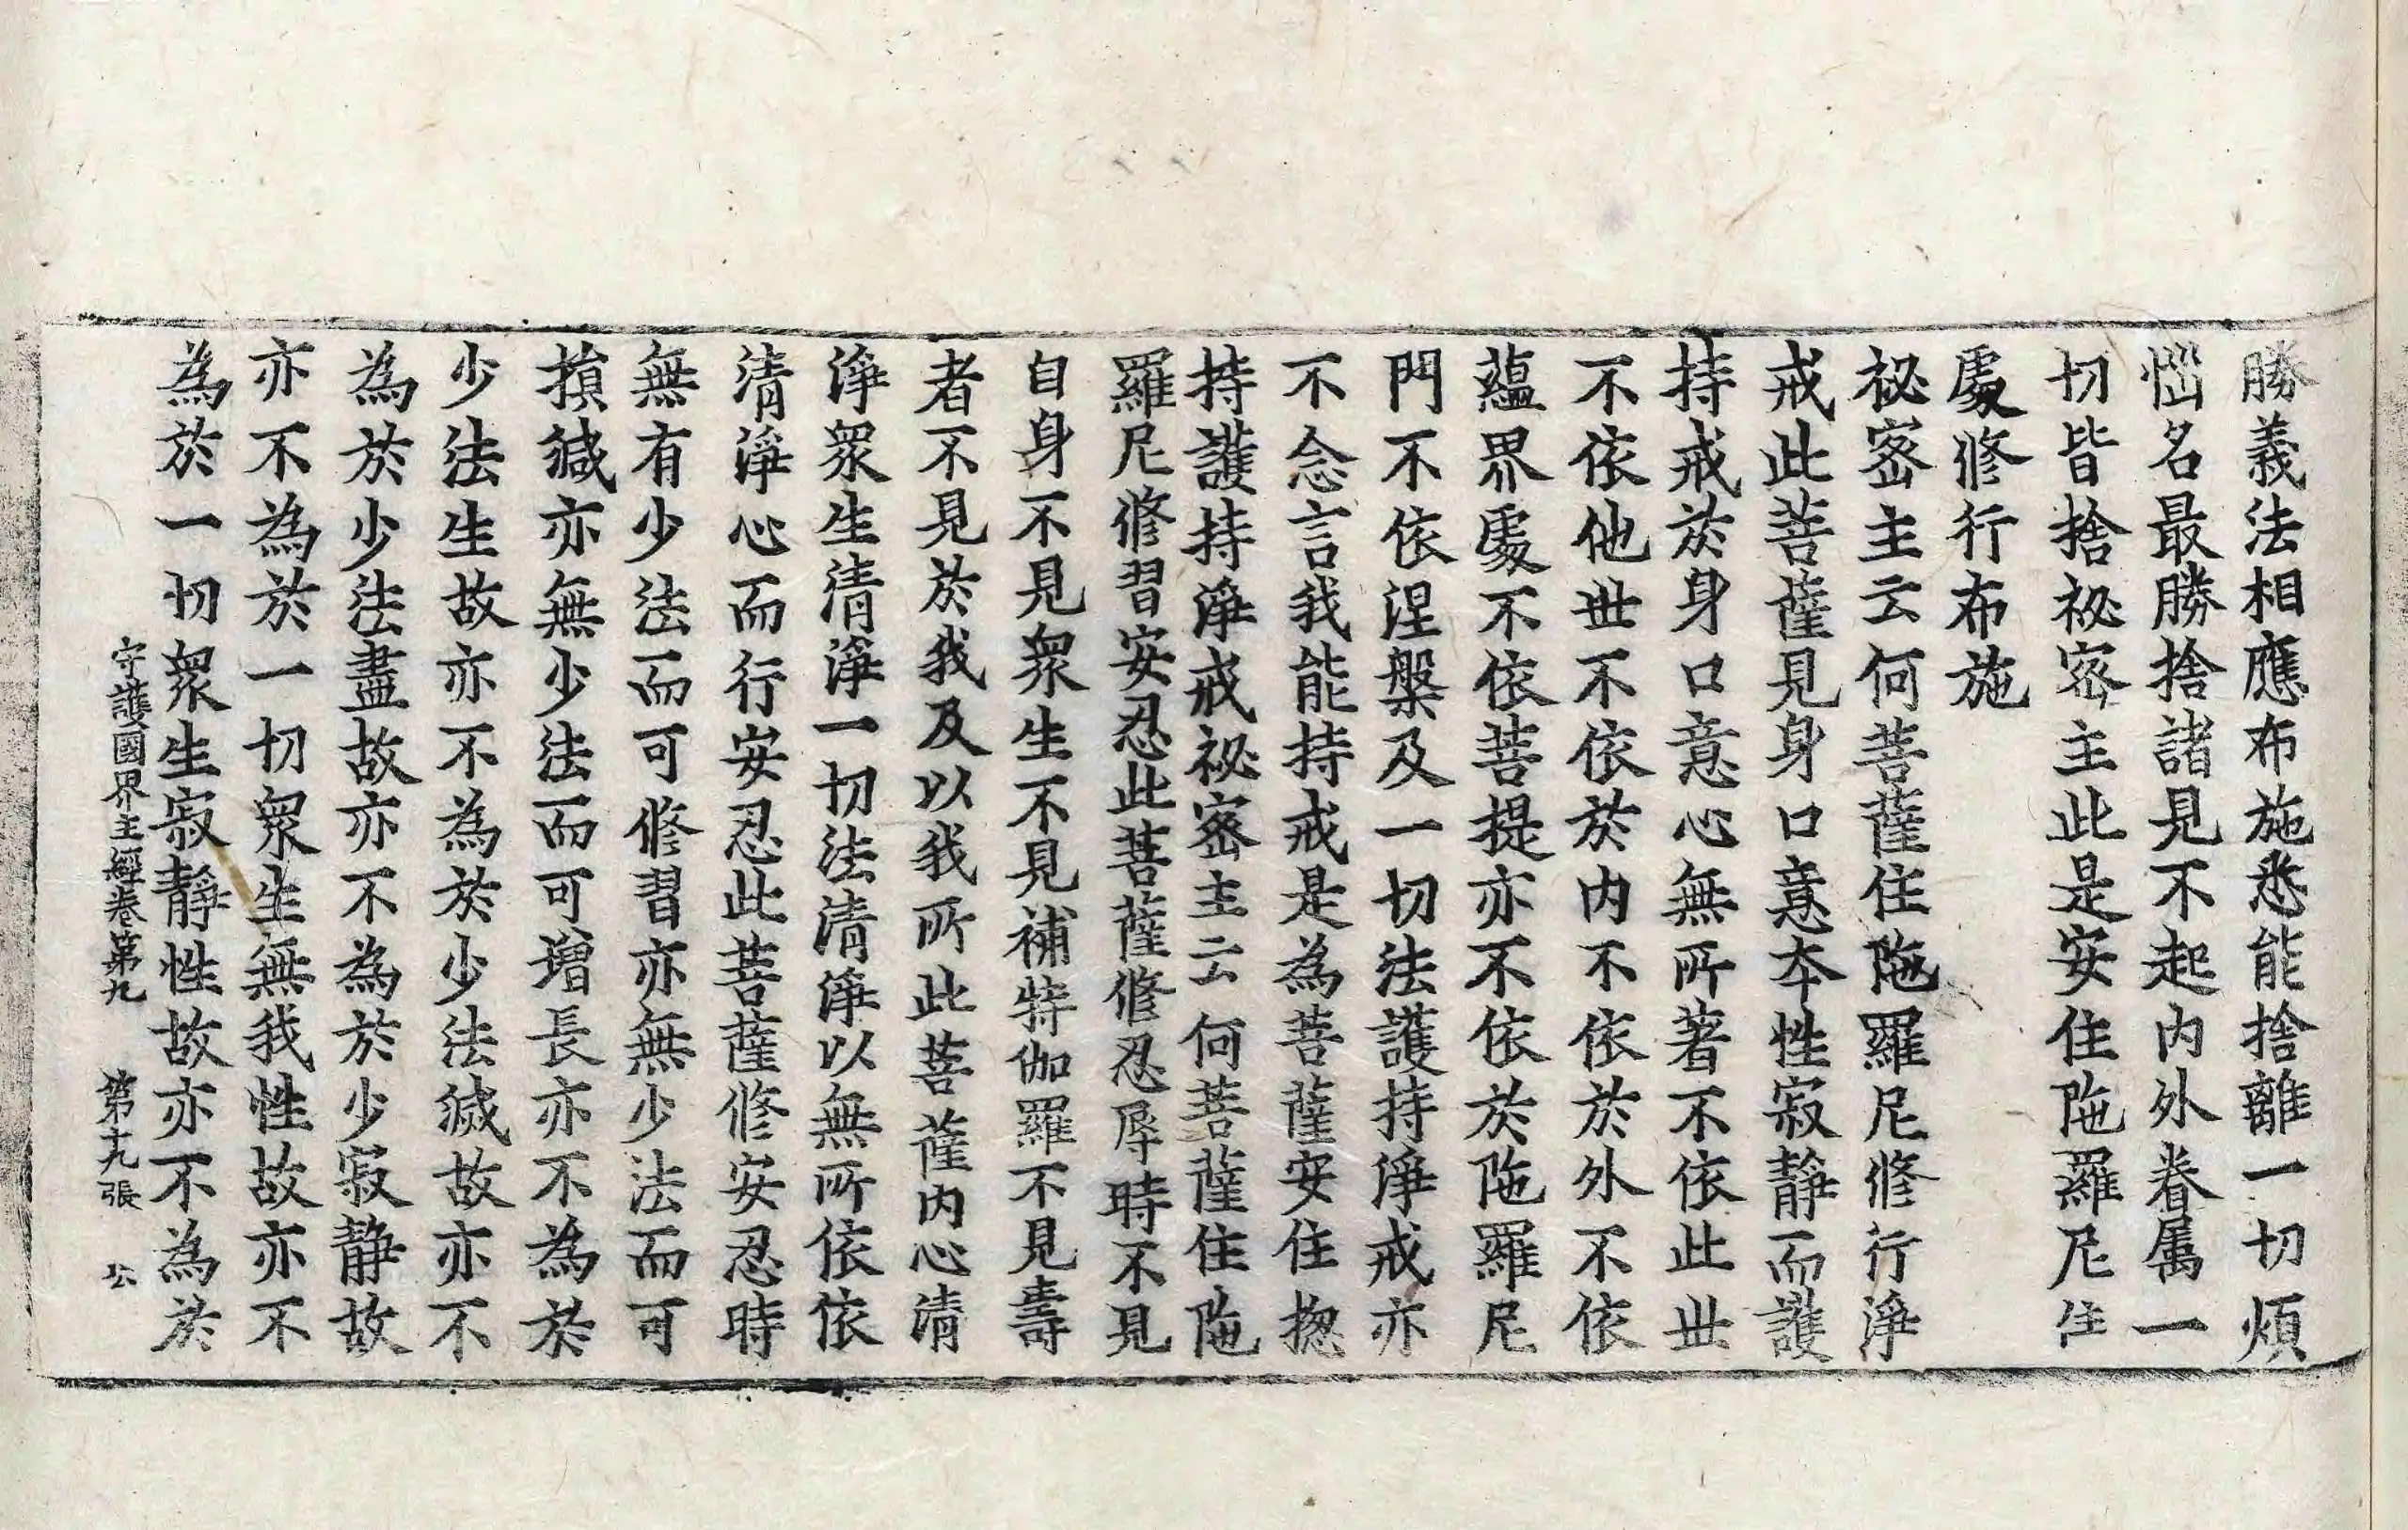 勝義法相應布施悉能捨離一切煩
惱名最勝捨諸見不起内外眷属一
切皆捨祕密主此是安住陁羅尼住
處修行布施
祕密主云何菩薩住陁羅尼修行淨
戒此菩薩見身口意本性寂靜而護
持戒於身口意心無所著不依此世
不依他世不依於内不依於外不依
蘊界處不依菩提亦不依於陁羅尼
門不依涅槃及一切法護持淨戒亦
不念言我能持戒是為菩薩安住揔
持護持淨戒祕密主云何菩薩住陁
羅尼修習安忍此菩薩修忍辱時不見
自身不見衆生不見補特伽羅不見壽
者不見於我及以我所此菩薩内心清
淨衆生清淨一切法清淨以無所依依
清淨心而行安忍此菩薩修安忍時
無有少法而可修習亦無少法而可
損減亦無少法而可增長亦不為於
少法生故亦不為於少法滅故亦不
為於少法盡故亦不為於少寂靜故
亦不為於一切衆生無我性故亦不
為於一切衆生寂靜性故亦不為於
守護國界主經卷第九 第十九張 公